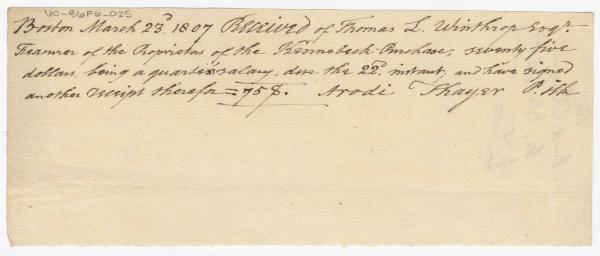 60-86F6-025
Boston March 23d. 1807 Received of Thomas L. Winthrop Esqr.
Treasurer of the Proprietors of the Kennebeck Purchase, seventy five
dollars, being a quarter's salary, due the 22d. instant, and have signed
another receipt therefor = 75 $. Arodi Thayer P.